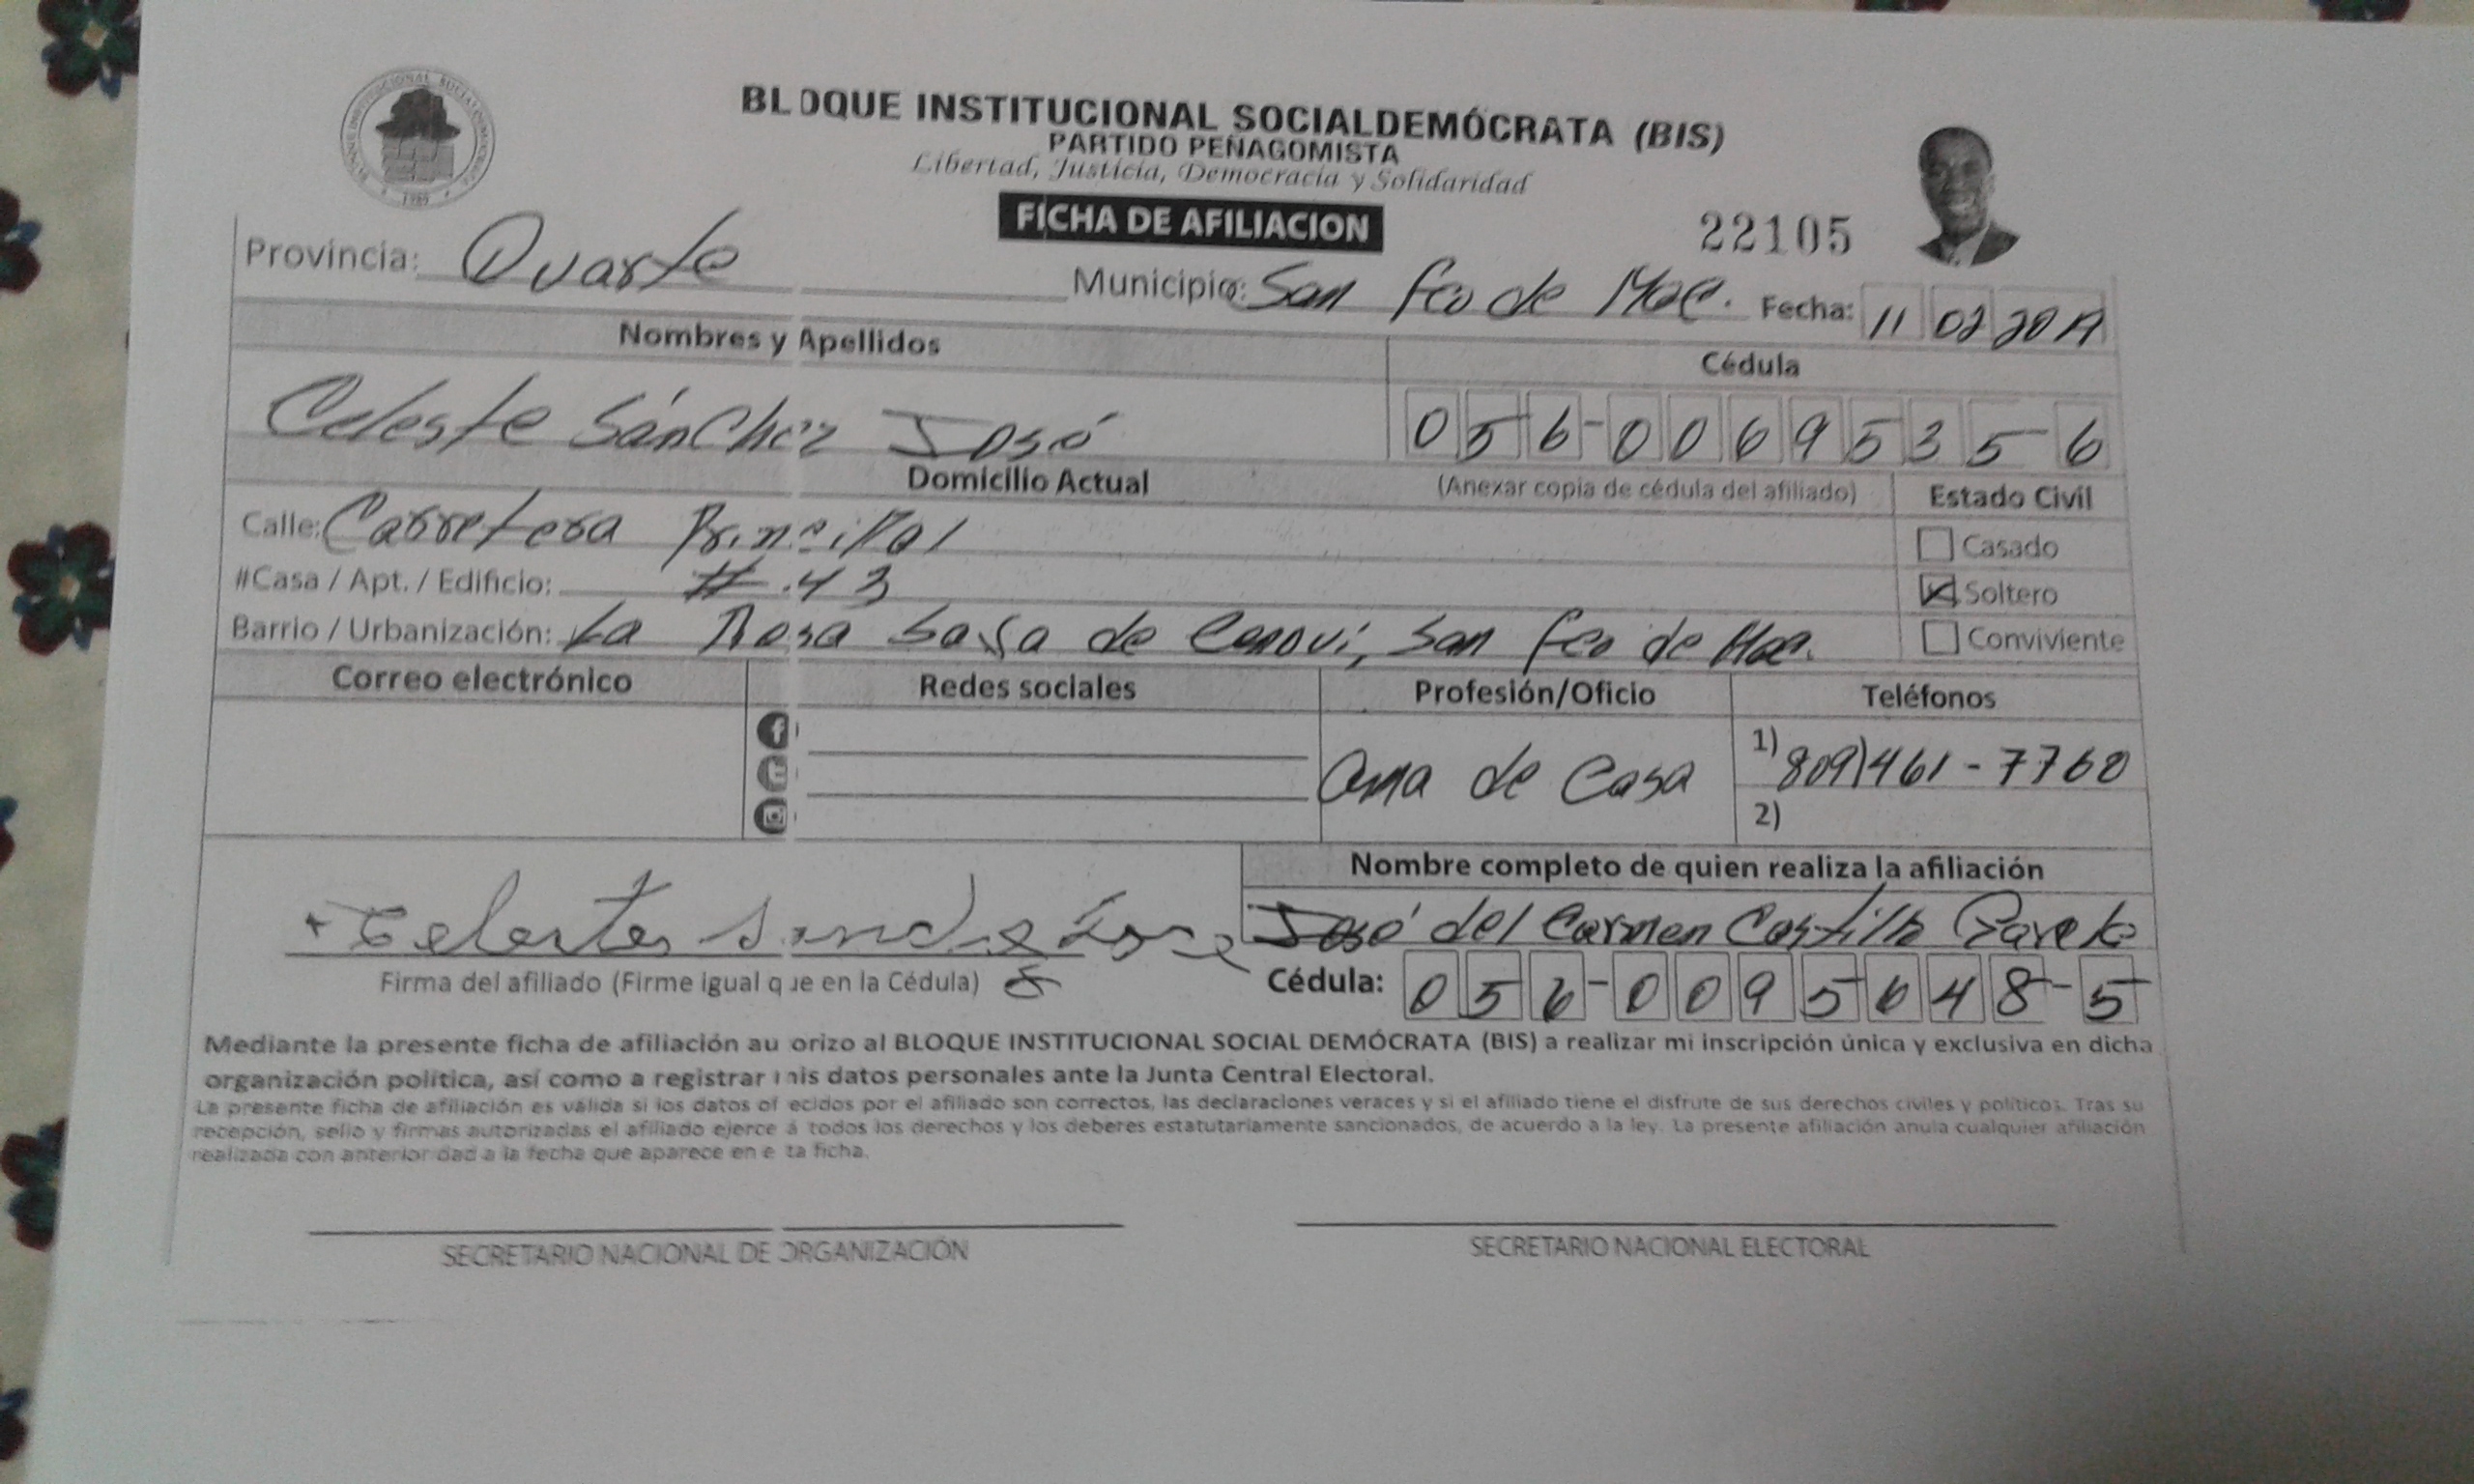 BLOQUE INSTITUCIONAL SOCIALDEMÓCRATA (BIS)
PARTIDO PEÑAGOMISTA
Libertad, Justicia, Democracia y Solidaridad
FICHA DE AFILIACION
22105
1989
Provincia: Duarte Municipio: San fco de Mac. Fecha: 11 02
Nombres y Apellidos Cédula
Celeste Sánchez José 056-0069535-6
Domicilio Actual (Anexar copia de cédula del afiliado) Estado Civil
Calle: Carretera Principal Casado
#Casa / Apt. / Edificio: #.43 Soltero
Barrio / Urbanización: La de Cenovi, San fco de Mac. Conviviente
Correo electrónico Redes sociales Profesión/Oficio Teléfonos
Ama de Casa 1) 809)461-7760
2)
Nombre completo de quien realiza la afiliación
José del Carmen Castillo
Firma del afiliado (Firme igual que en la Cédula) Cédula: 056-0095648-5
Mediante la presente ficha de afiliación au orizo al BLOQUE INSTITUCIONAL SOCIAL DEMÓCRATA (BIS) a realizar mi inscripción única y exclusiva en dicha
organización política, así como a registrar mis datos personales ante la Junta Central Electoral.
La presente ficha de afiliación es válida si los datos of ecidos por el afiliado son correctos, las declaraciones veraces y si el afiliado tiene el disfrute de sus derechos civiles y políticos. Tras su
recepción, sello y firmas autorizadas el afiliado ejerce a todos los derechos y los deberes estatutariamente sancionados, de acuerdo a la ley. La presente afiliación anula cualquier afiliación
realizada con anterior dad a la fecha que aparece en e ta ficha.
SECRETARIO NACIONAL DE ORGANIZACIÓN SECRETARIO NACIONAL ELECTORAL